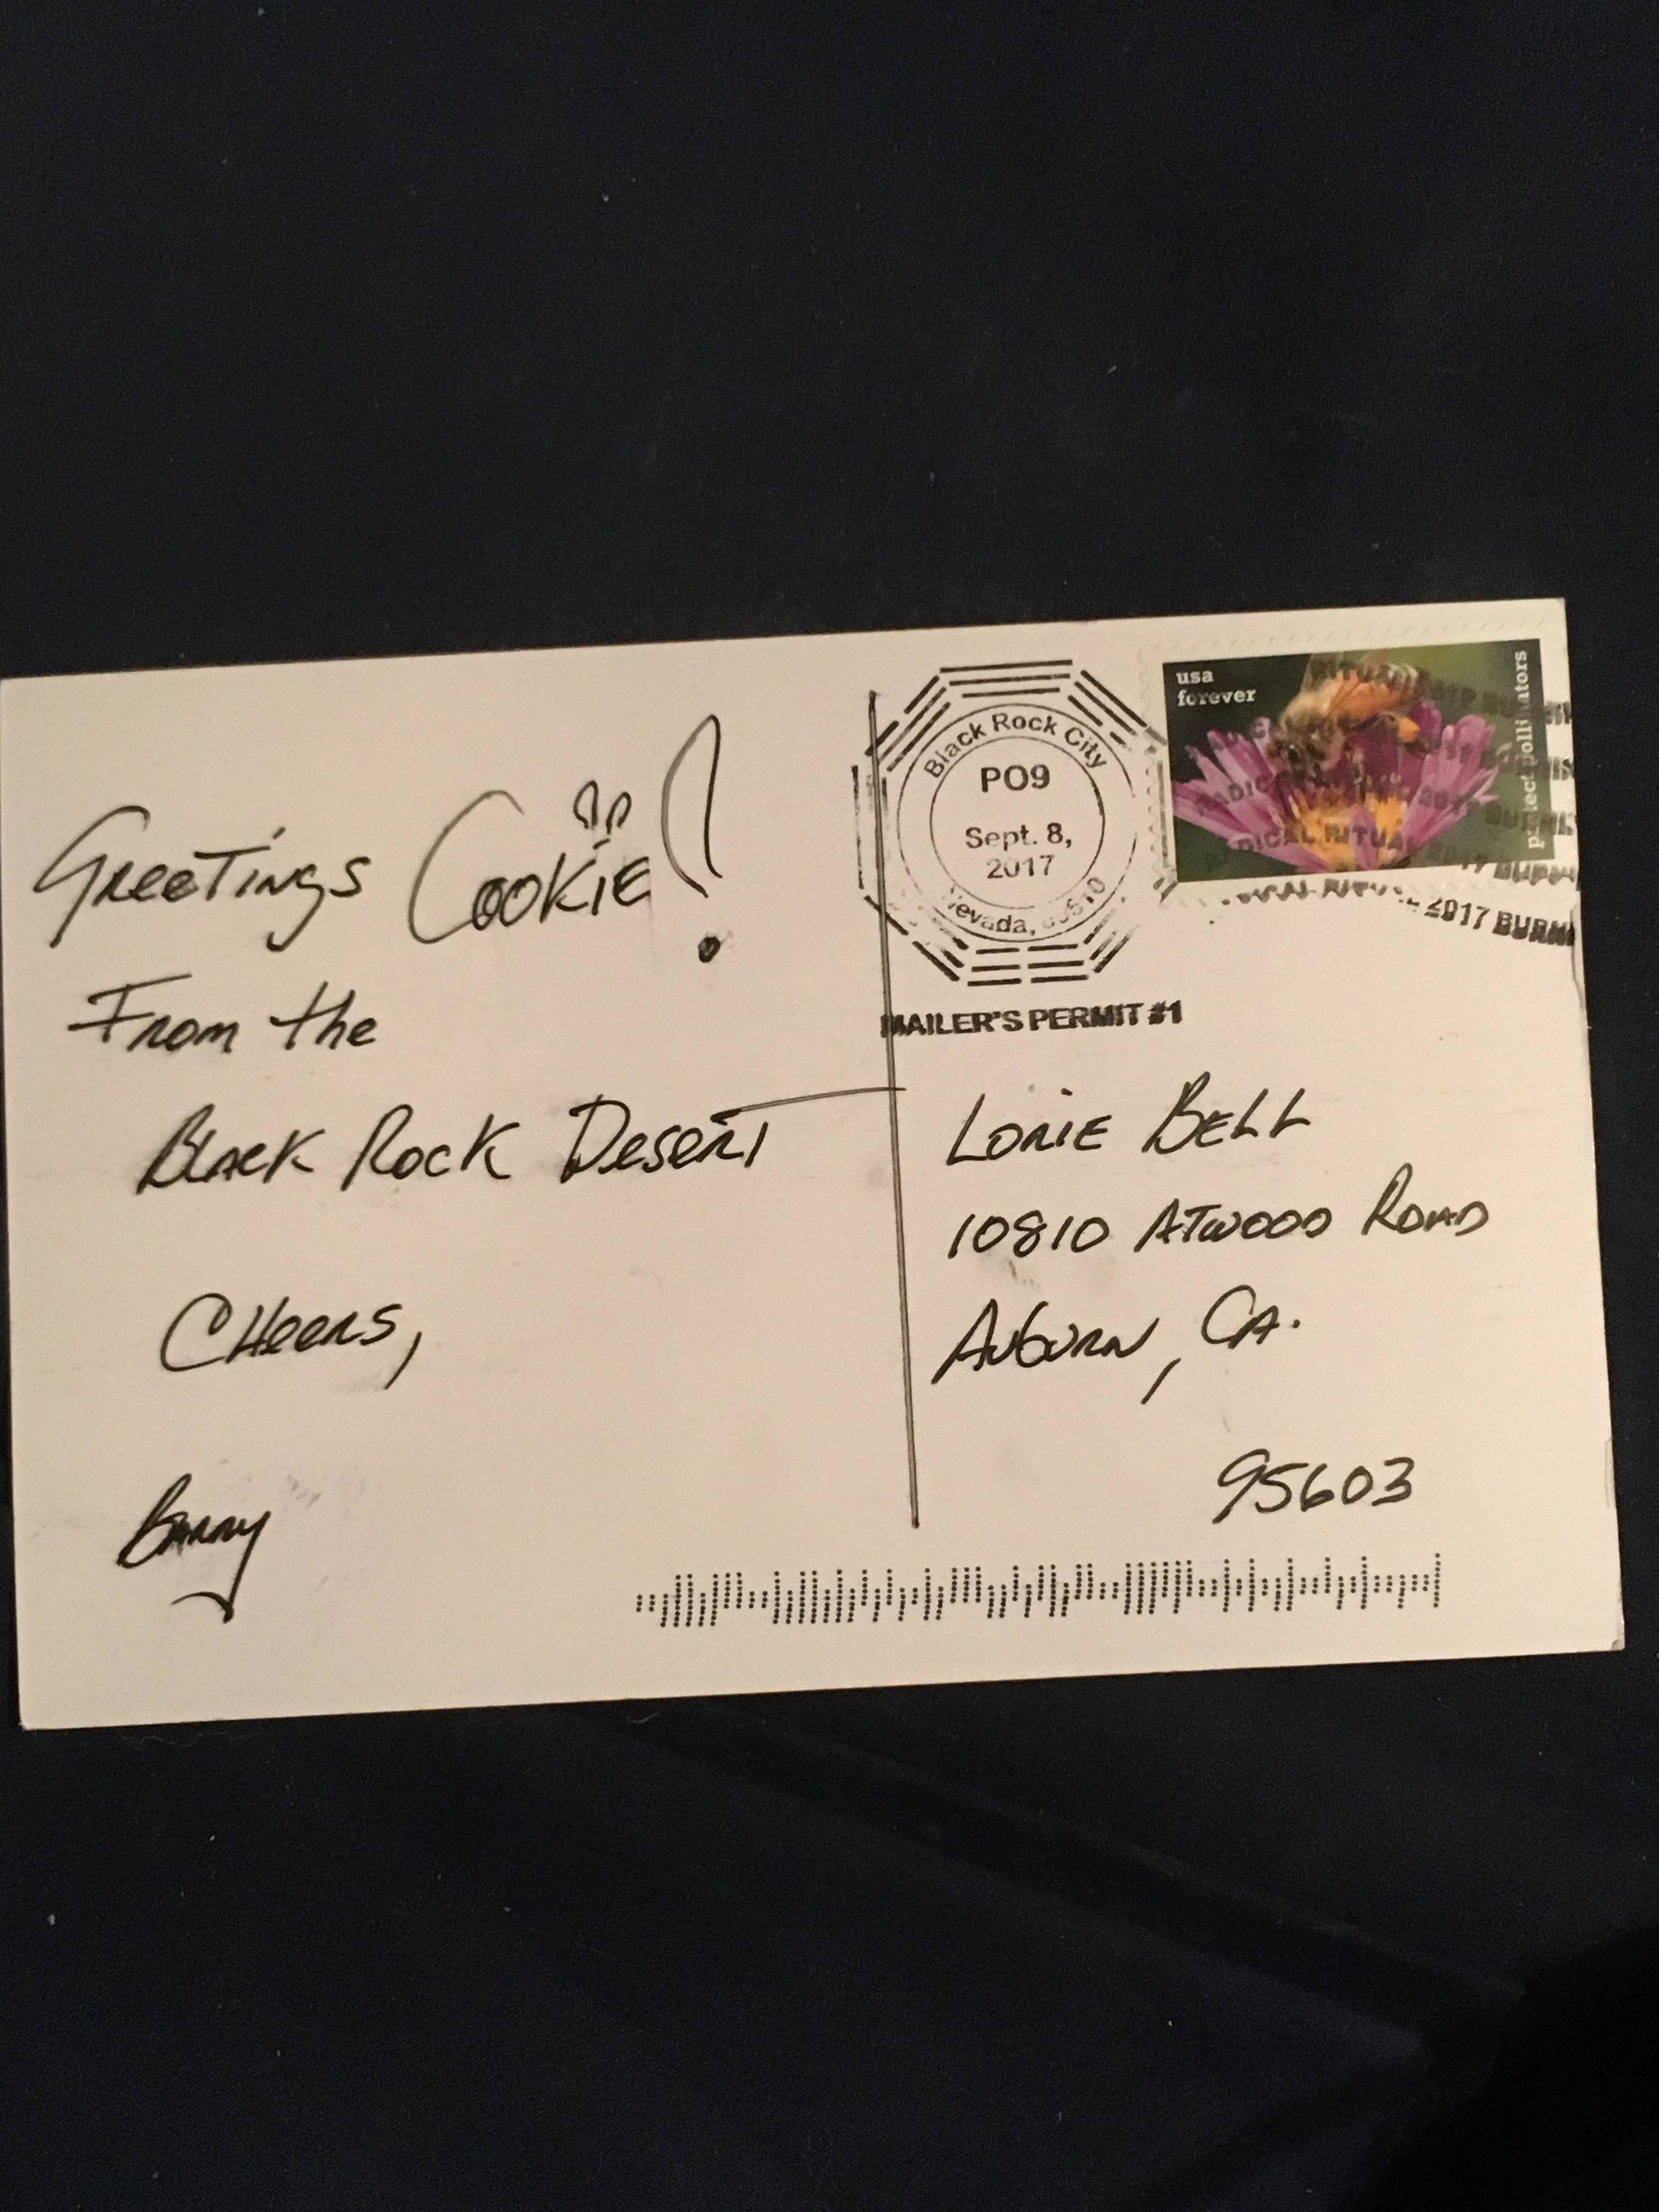 Greetings Cookie!
From the
Black Rock Desert
Cheers,
Barry
Black Rock City
PO9
Sept. 8,
2017
Nevada,
MAILER'S PERMIT #1
usa
forever
protect pollinators
RADICAL RITUAL 2017 BURNI
Lorie Bell
10810 Atwood Road
Auburn, CA.
95603